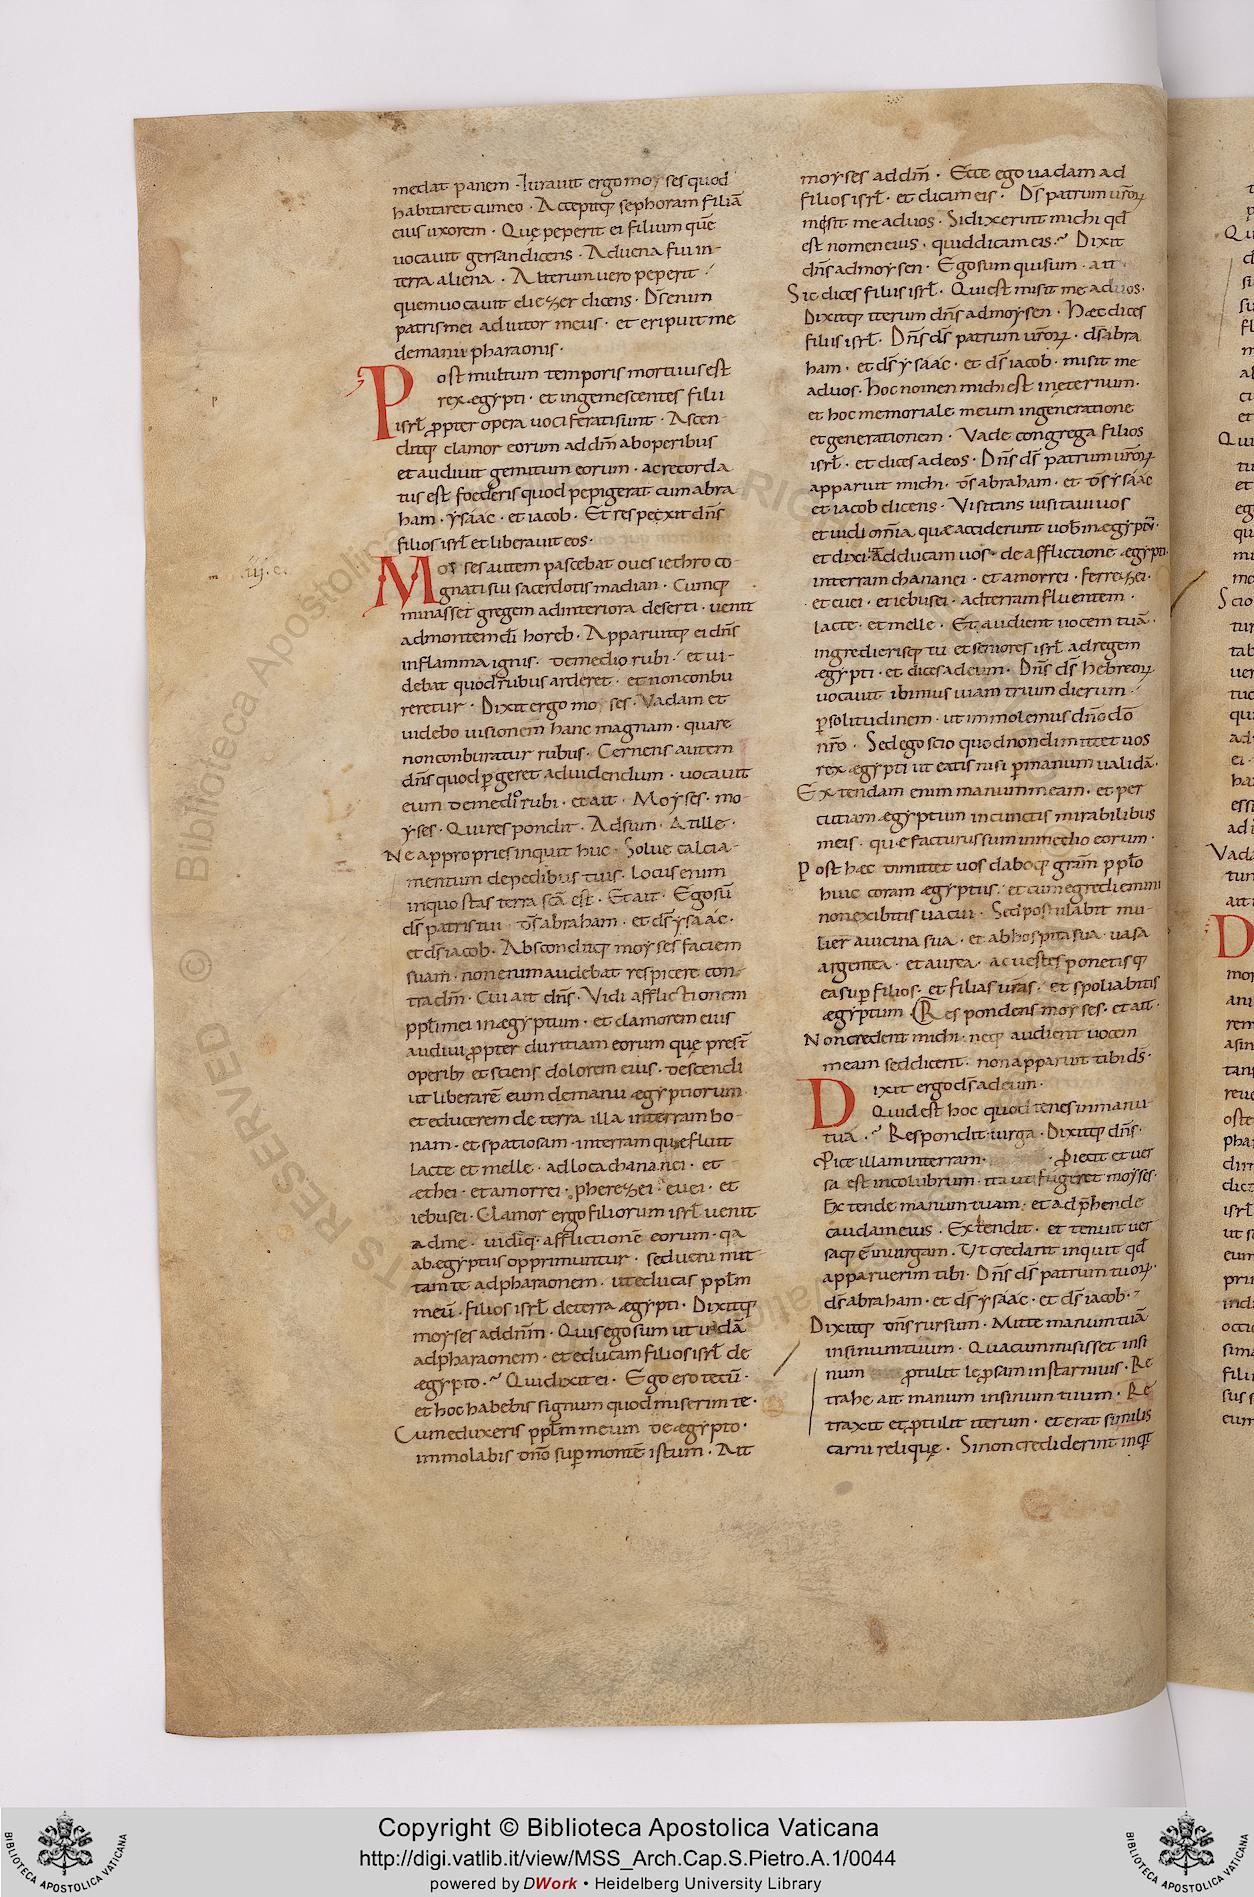 medat panem · Iuravit ergo moyses quod
habitaret cum eo · Accepitq; sephoram filiā
eius uxorem · Quę peperit ei filium quē
vocavit gersan dicens · Advena fui in
terra aliena · Alterum vero peperit ·
quem vocavit eliezer dicens · D̄s enim
patris mei adiutor meus · et eripuit me
de manu pharaonis ·
Post multum temporis mortuus est
rex ægypti · et ingemescentes filii
isrł ꝓpter opera vociferati sunt · Ascen
ditq; clamor eorum ad dm̄ ab operibus
et audivit gemitum eorum · ac recorda
tus est foederis quod pepigerat cum abra
ham · ysaac · et iacob · Et respexit dn̄s
filios isrł et liberavit eos ·
Moyses autem pascebat oves iethro co
gnati sui sacerdotis madian · Cumq;
minasset gregem ad interiora deserti · venit
ad montem dī horeb · Apparuitq; ei dn̄s
in flamma ignis · de medio rubi · et vi-
debat quod rubus arderet · et non conbu
reretur · Dixit ergo moyses · Vadam et
videbo visionem hanc magnam · quare
non conburatur rubus · Cernens autem
dn̄s quod ꝑgeret ad videndum · vocavit
eum de medio rubi · et ait · Moyses · mo-
yses · Qui respondit · Adsum · At ille ·
Ne appropries inquit huc · Solve calcia-
mentum de pedibus tuis · locus enim
in quo stas terra scā est · Et ait · Ego sū
d̄s patris tui · d̄s abraham · et d̄s ysaac ·
et d̄s iacob · Absconditq; moyses faciem
suam · non enim audebat respicere con-
tra dm̄ · Cui ait dn̄s · Vidi afflictionem
ppłi mei in ægyptum · et clamorem eius
audivi ꝓpter duritiam eorum quę presт̄
operib; et sciens dolorem eius · descendi
ut liberarē eum de manu ægyptiorum
et educerem de terra illa in terram bo-
nam · et spatiosam · in terram quę fluit
lacte et melle · ad loca chananei · et
æthei · et amorrei · pherezei · evei · et
iebusei · Clamor ergo filiorum isrł venit
ad me · vidiq; afflictionē eorum · qa
ab ægyptus opprimuntur · sed veni mit
tam te ad pharaonem · ut educas ppłm
meū · filios isrł de terra ægypti · Dixitq;
moyses ad dnm̄ · Quis ego sum ut vadā
ad pharaonem · et educam filios isrł de
ægypto · Qui dixit ei · Ego ero tecū ·
et hoc habebis signum quod miserim te ·
Cum eduxeris ppłm meum de ægypto ·
immolabis dn̄o suꝑ montē istum · Ait
moyses ad dm̄ · Ecce ego vadam ad
filios isrł · et dicam eis · D̄s patrum vr̄oꝝ
misit me ad vos · Si dixerint michi qđ
est nomen eius · quid dicam eis · Dixit
dn̄s ad moysen · Ego sum qui sum · ait
Sic dices filiis isrł · Qui est misit me ad vos ·
Dixitq; iterum dn̄s ad moysen · Hæc dices
filiis isrł · Dn̄s d̄s patrum vr̄oꝝ · d̄s abra
ham · et d̄s ysaac · et d̄s iacob · misit me
ad vos · hoc nomen michi est in eternum ·
et hoc memoriale meum in generatione
et generationem · Vade congrega filios
isrł · et dices ad eos · Dn̄s d̄s patrum vr̄oꝝ
apparuit michi · d̄s abraham · et d̄s ysaac
et iacob dicens · Visitans visitavi vos
et vidi om̄ia quæ acciderunt vob̄ in ægyptū ·
et dixi · Adducam vos · de afflictione ægypti ·
in terram chananei · et amorrei · ferezei ·
et evei · et iebusei · ad terram fluentem ·
lacte · et melle · Et audient vocem tuā ·
ingredierisq; tu et seniores isrł ad regem
ægypti · et dices ad eum · Dn̄s d̄s hebreoꝝ
vocavit · ibimus viam trium dierum ·
ꝑ solitudinem · ut immolemus dn̄o dō
nr̄o · Sed ego scio quod non dimittet vos
rex ægypti ut eatis nisi ꝑ manum validā ·
Extendam enim manum meam · et per
cutiam ægyptum in cunctis mirabilibus
meis · quæ facturus sum in medio eorum ·
Post hæc dimittet vos daboq; gram̄ pplo
huic coram ægyptiis · et cum egrediemini
non exibitis vacui · Sed postulabit mu-
lier a vicina sua · et ab hospita sua · vasa
argentea · et aurea · ac vestes ponetisq;
eas suꝑ filios · et filias vr̄as · et spoliabitis
ægyptum · Respondens moyses · et ait ·
Non credent michi · neq; audient vocem
meam sed dicent · non apparuit tibi d̄s ·
Dixit ergo d̄s ad eum ·
Quid est hoc quod tenes in manu
tua · Respondit · virga · Dixitq; dn̄s ·
ꝓice illam in terram · ꝓiecit et ver
sa est in colubrum · ita ut fugeret moyses ·
Extende manum tuam · et adp̄hende
caudam eius · Extendit · et tenuit ver
saq; ē in virgam · Ut credant inquit qđ
apparuerim tibi · Dn̄s d̄s patrum tuoꝝ ·
d̄s abraham · et d̄s ysaac · et d̄s iacob ·
Dixitq; dn̄s rursum · Mitte manum tuā
in sinum tuum · Qua cum misisset in si
num ꝓtulit leꝓsam instar nivis · Re
trahe ait manum in sinum tuum · Re
traxit et ꝓtulit iterum · et erat similis
carni relique · Si non crediderint inqt
Copyright © Biblioteca Apostolica Vaticana
http://digi.vatlib.it/view/MSS_Arch.Cap.S.Pietro.A.1/0044
powered by DWork • Heidelberg University Library
BIBLIOTECA APOSTOLICA VATICANA
BIBLIOTECA APOSTOLICA VATICANA